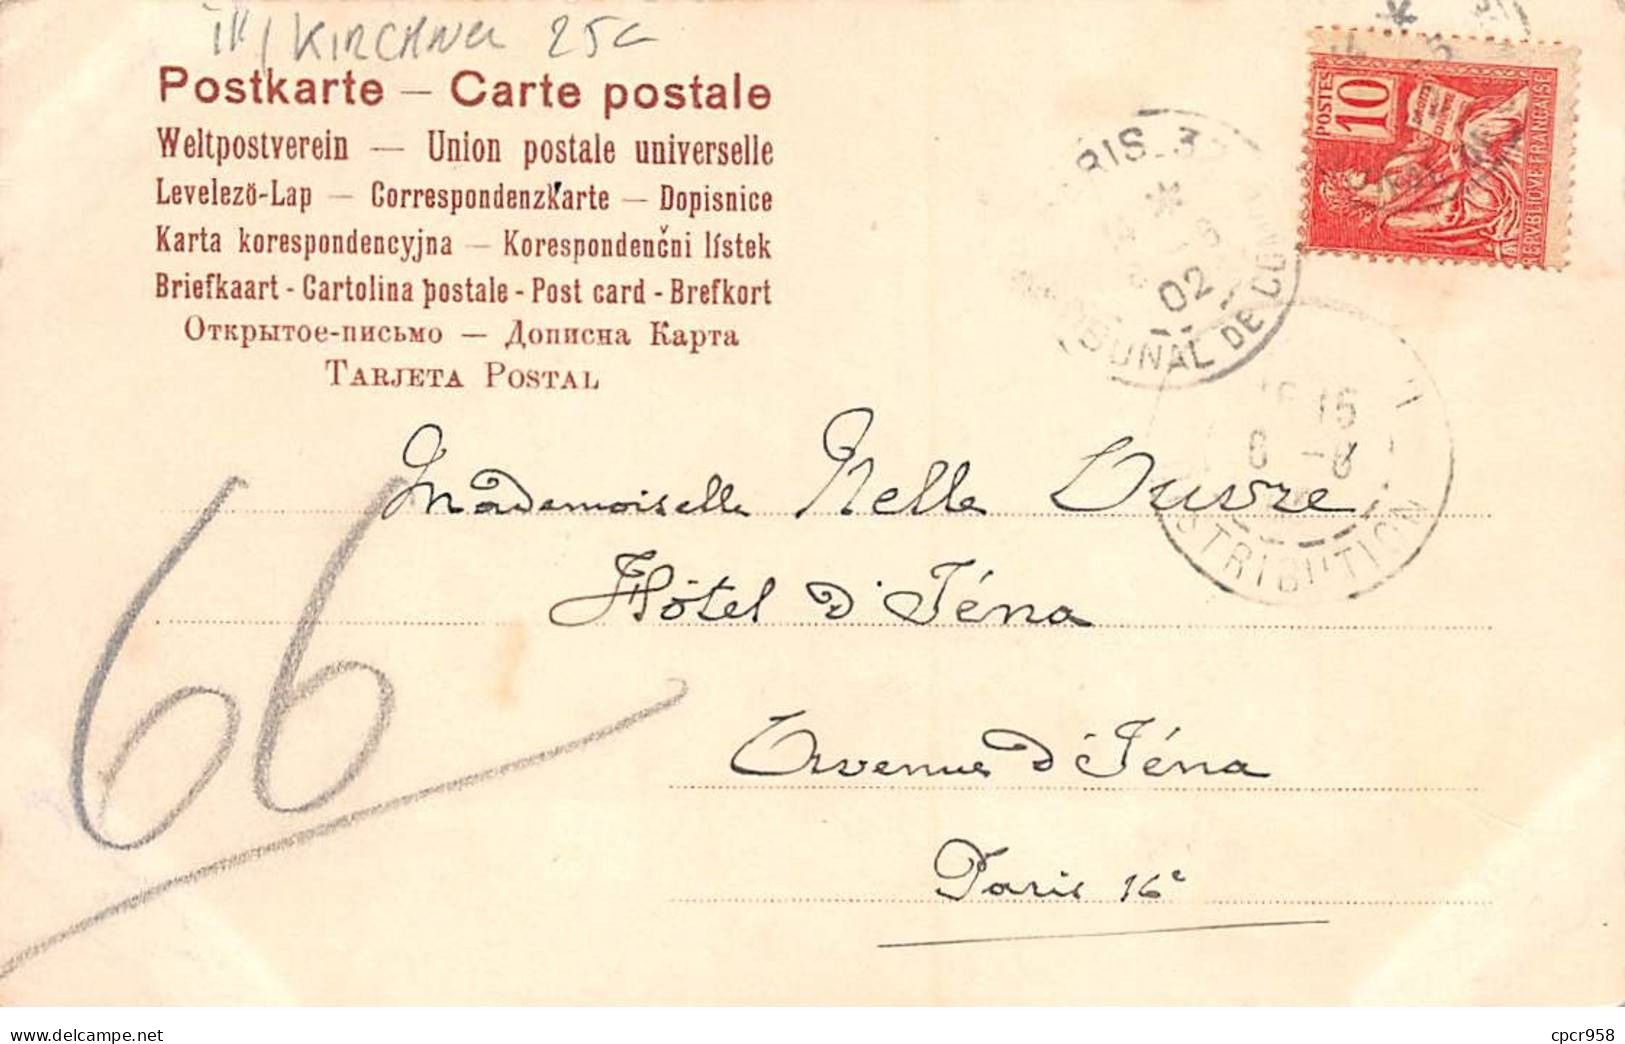 ill/ KIRCHNER 25c
Postkarte — Carte postale
Weltpostverein — Union postale universelle
Levelező-Lap — Correspondenzkarte — Dopisnice
Karta korespondencyjna — Korespondenčni lístek
Briefkaart - Cartolina postale - Post card - Brefkort
Открытое-письмо — Дописна Карта
TARJETA POSTAL
POSTES
10
REPVBLIQVE FRANÇAISE
RIS_3
02
BUNAL DE COM
15
6 -6
STRIBUTION
Mademoiselle Nelle
Hôtel d'Iéna
Avenue d'Iéna
Paris 16e
66
www.delcampe.net
cpcr958